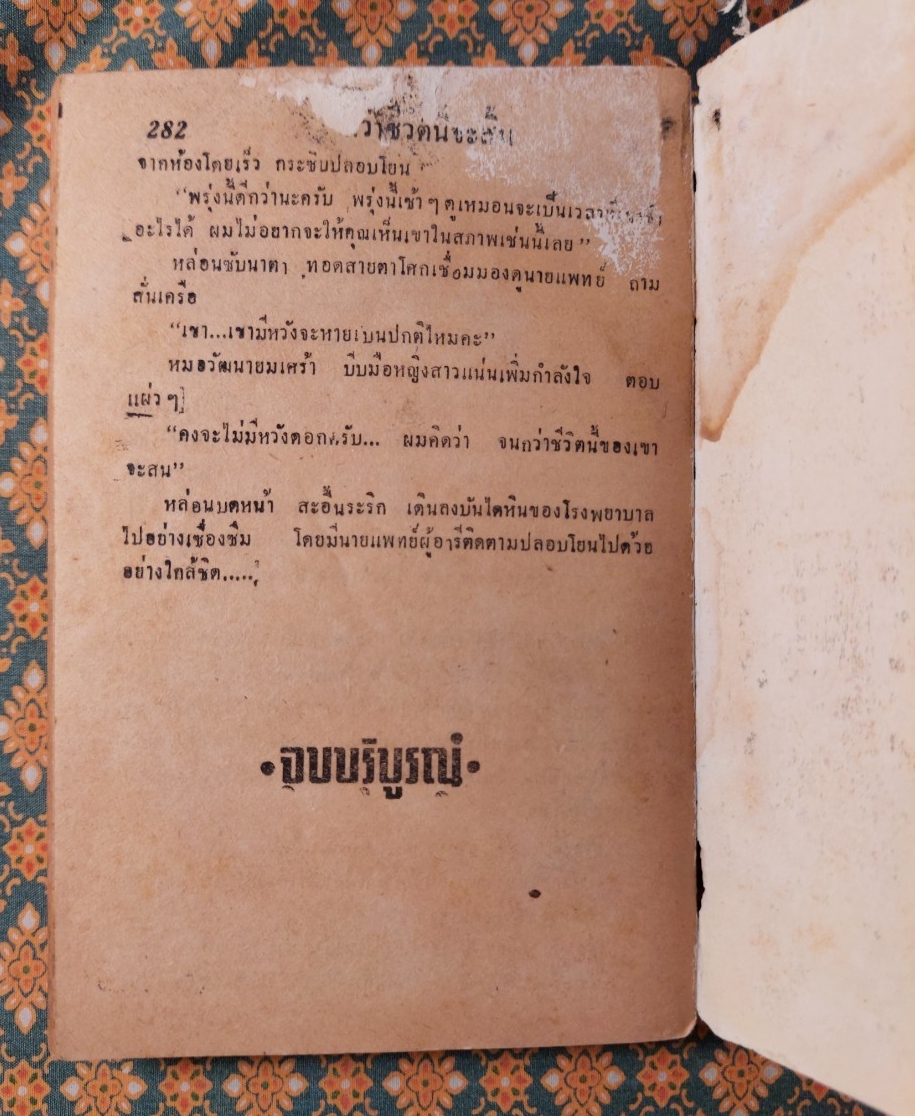 282 ว่าชีวิตนี้จะสิ้น
จากห้องโดยเร็ว กระซิบปลอบโยน
“พรุ่งนี้ดีกว่านะครับ พรุ่งนี้เช้าๆ ดูเหมือนจะเป็นเวลา
อะไรได้ ผมไม่อยากจะให้คุณเห็นเขาในสภาพเช่นนี้เลย”
หล่อนซับน้ำตา ทอดสายตาโศกเชื่อมมองดูนายแพทย์ ถาม
สั่นเครือ
“เขา...เขามีหวังจะหายเป็นปกติไหมคะ”
หมอวัฒนายิ้มเศร้า บีบมือหญิงสาวแน่นเพิ่มกำลังใจ ตอบ
แผ่วๆ
“คงจะไม่มีหวังดอกครับ... ผมคิดว่า จนกว่าชีวิตนี้ของเขา
จะสิ้น”
หล่อนบดหน้า สะอื้นระริก เดินลงบันไดหินของโรงพยาบาล
ไปอย่างเชื่องซึม โดยมีนายแพทย์ผู้อารีติดตามปลอบโยนไปด้วย
อย่างใกล้ชิด.....
•จบบริบูรณ์•